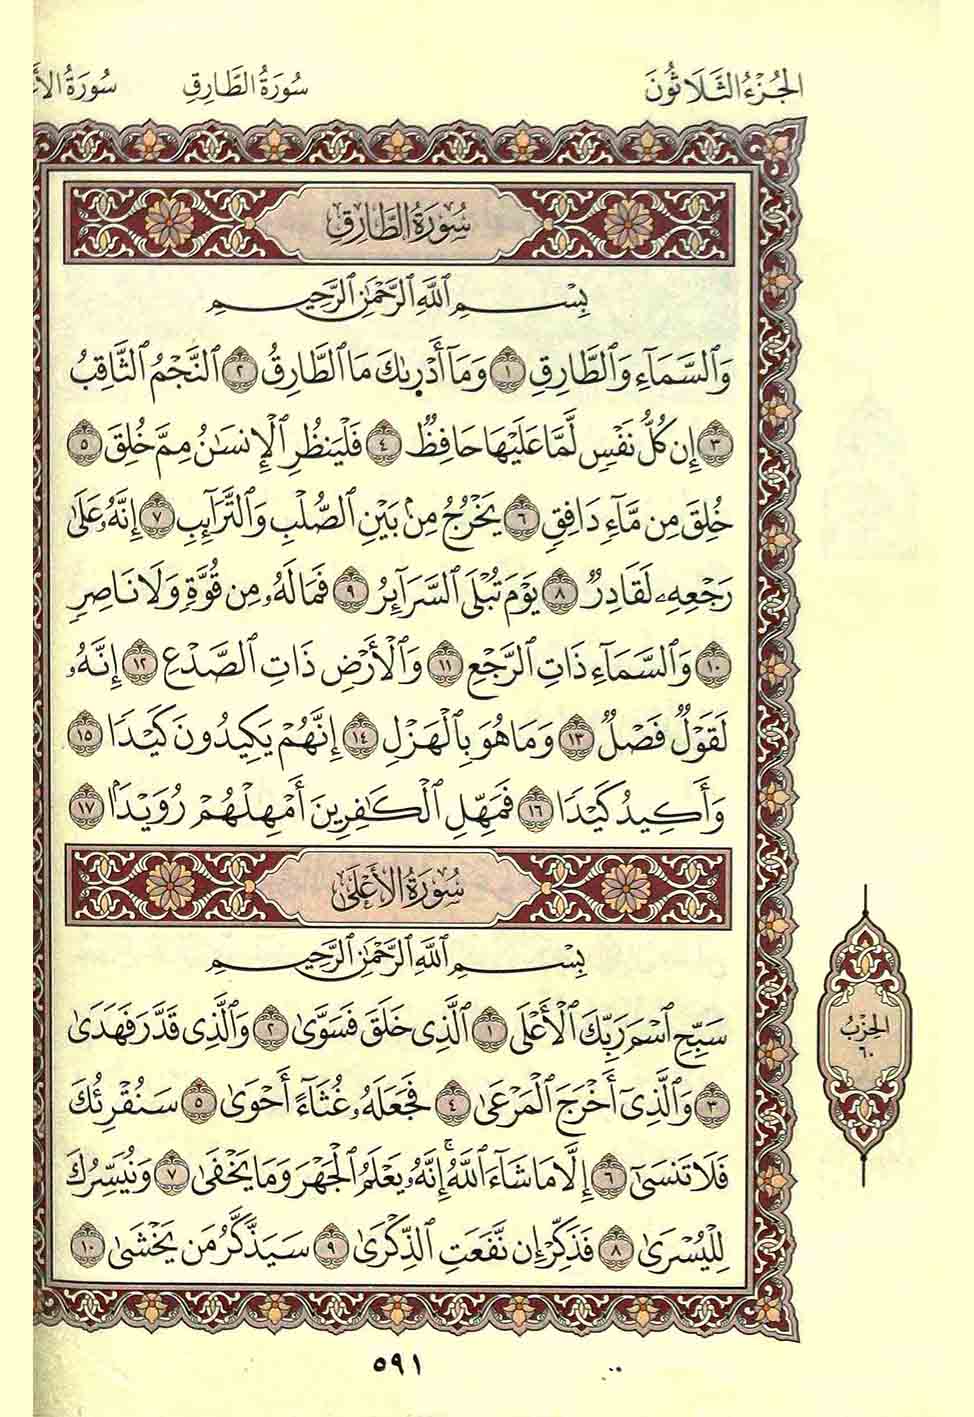 الجُزْءُ الثَّلَاثُونَ سُورَةُ الطَّارِقِ
سُورَةُ الطَّارِقِ
بِسْمِ ٱللَّهِ ٱلرَّحْمَٰنِ ٱلرَّحِيمِ
وَٱلسَّمَآءِ وَٱلطَّارِقِ ١ وَمَآ أَدْرَىٰكَ مَا ٱلطَّارِقُ ٢ ٱلنَّجْمُ ٱلثَّاقِبُ
٣ إِن كُلُّ نَفْسٍ لَّمَّا عَلَيْهَا حَافِظٌ ٤ فَلْيَنظُرِ ٱلْإِنسَٰنُ مِمَّ خُلِقَ ٥
خُلِقَ مِن مَّآءٍ دَافِقٍ ٦ يَخْرُجُ مِنۢ بَيْنِ ٱلصُّلْبِ وَٱلتَّرَآئِبِ ٧ إِنَّهُۥ عَلَىٰ
رَجْعِهِۦ لَقَادِرٌ ٨ يَوْمَ تُبْلَى ٱلسَّرَآئِرُ ٩ فَمَا لَهُۥ مِن قُوَّةٍ وَلَا نَاصِرٍ
١٠ وَٱلسَّمَآءِ ذَاتِ ٱلرَّجْعِ ١١ وَٱلْأَرْضِ ذَاتِ ٱلصَّدْعِ ١٢ إِنَّهُۥ
لَقَوْلٌ فَصْلٌ ١٣ وَمَا هُوَ بِٱلْهَزْلِ ١٤ إِنَّهُمْ يَكِيدُونَ كَيْدًا ١٥
وَأَكِيدُ كَيْدًا ١٦ فَمَهِّلِ ٱلْكَٰفِرِينَ أَمْهِلْهُمْ رُوَيْدًۢا ١٧
سُورَةُ الأَعْلَىٰ
بِسْمِ ٱللَّهِ ٱلرَّحْمَٰنِ ٱلرَّحِيمِ
سَبِّحِ ٱسْمَ رَبِّكَ ٱلْأَعْلَى ١ ٱلَّذِى خَلَقَ فَسَوَّىٰ ٢ وَٱلَّذِى قَدَّرَ فَهَدَىٰ
٣ وَٱلَّذِىٓ أَخْرَجَ ٱلْمَرْعَىٰ ٤ فَجَعَلَهُۥ غُثَآءً أَحْوَىٰ ٥ سَنُقْرِئُكَ
فَلَا تَنسَىٰٓ ٦ إِلَّا مَا شَآءَ ٱللَّهُ ۚ إِنَّهُۥ يَعْلَمُ ٱلْجَهْرَ وَمَا يَخْفَىٰ ٧ وَنُيَسِّرُكَ
لِلْيُسْرَىٰ ٨ فَذَكِّرْ إِن نَّفَعَتِ ٱلذِّكْرَىٰ ٩ سَيَذَّكَّرُ مَن يَخْشَىٰ ١٠
الحِزْبُ
٦٠
٥٩١